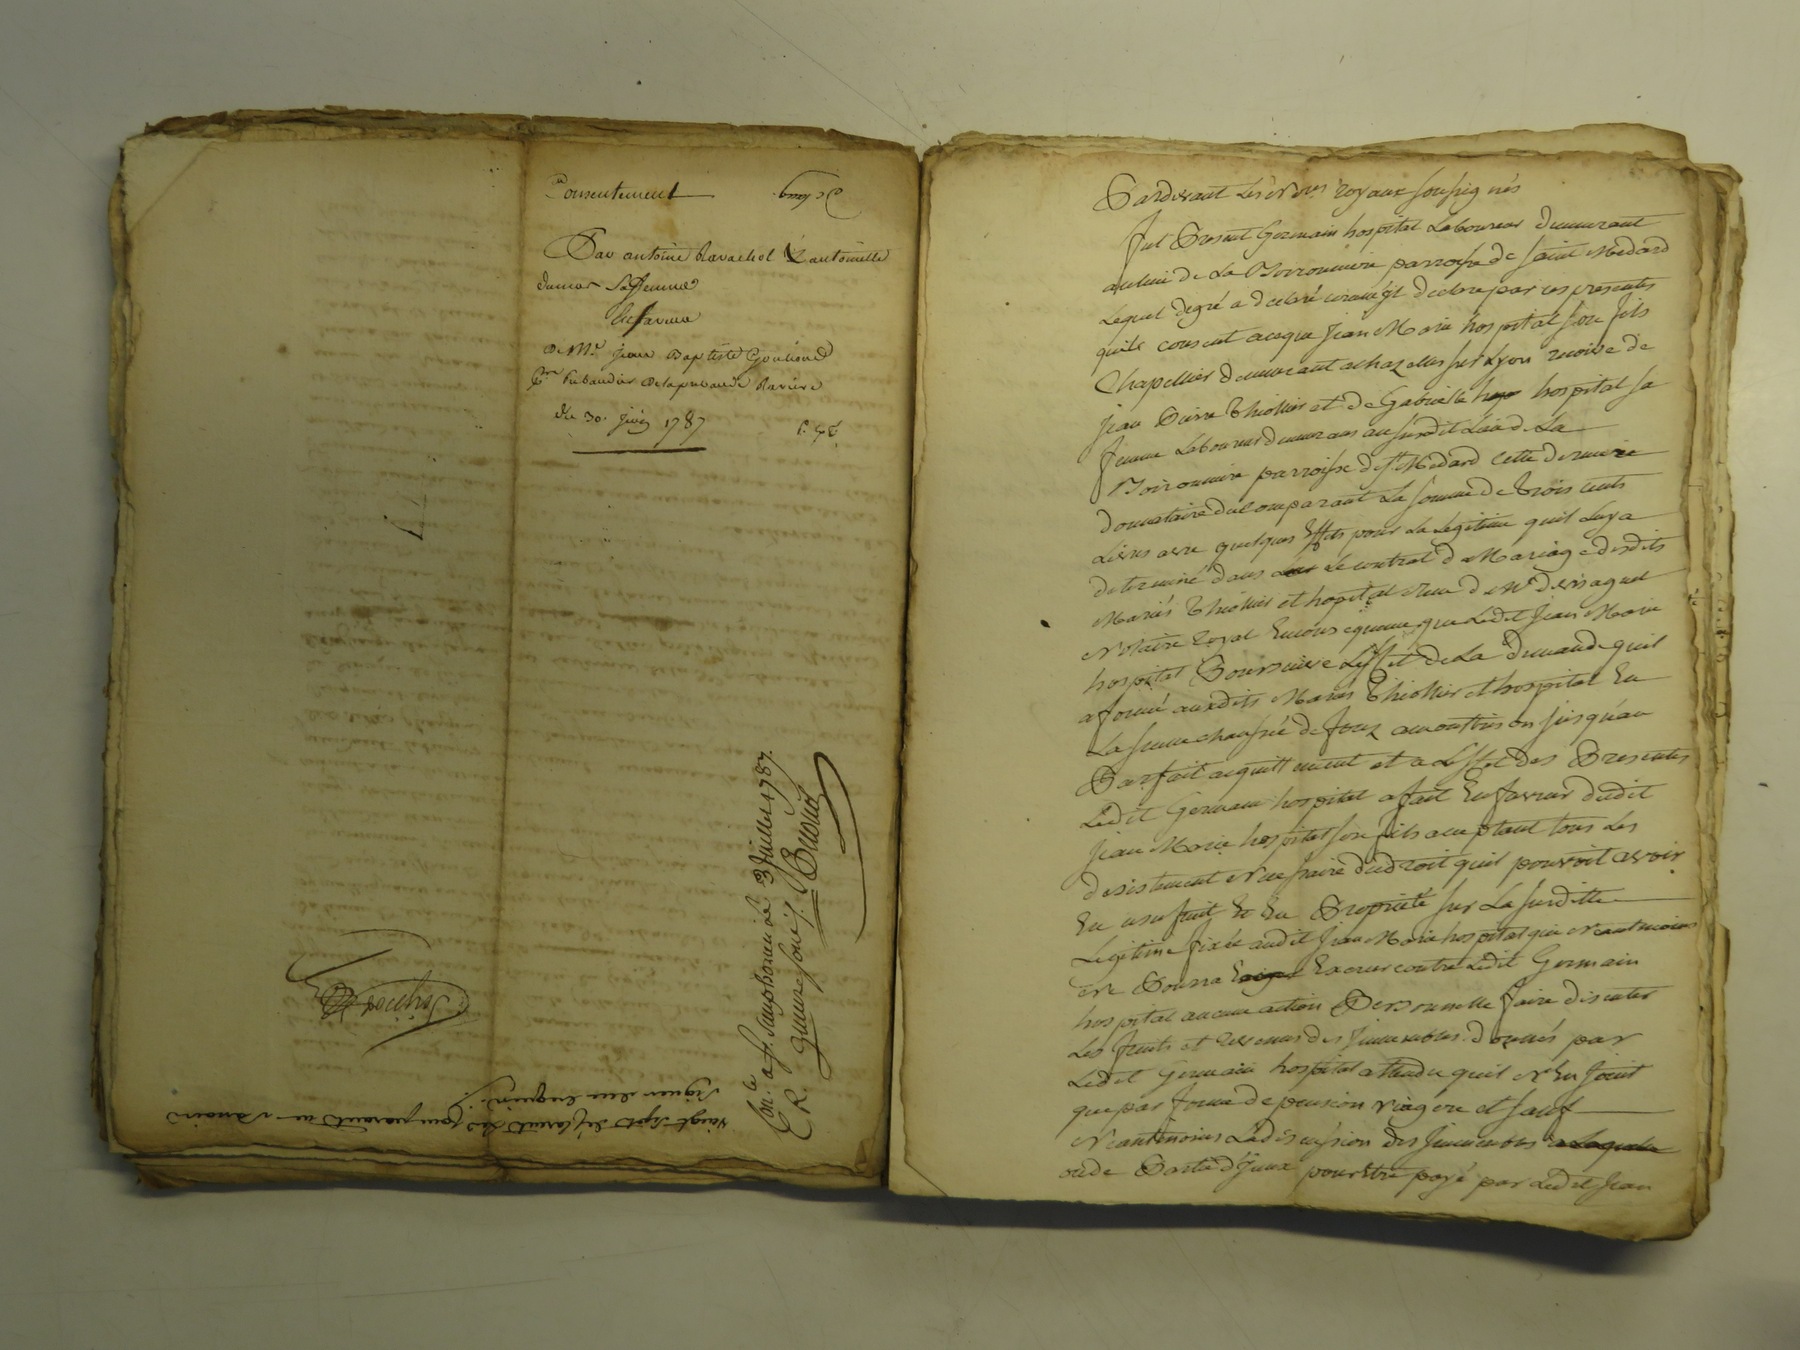 Consentement
Par antoine Ravachol & antoinette
dumas sa femme
En faveur
de Me. Jean Baptiste
Pre. Prebandier de la prebande Raviere
du 30. Juin 1787
vingt sept Lesquels ont declaré ne savoir
signer de ce enquis
En.le a St. Simphorien le 3 Juillet 1787.
R. quinze sous
Pardevant Les Nores. royaux soussignés
fut Present Germain hospital Laboureur demeurant
au lieu de La parroisse de saint Medard
Lequel de gré a declaré comme il declare par ces presentes
quil consent a ceque Jean Marie hospital son fils
Chapellier demeurant a chazelles sur Lyon recoive de
Jean Pierre Thiollier et de Gabrielle hospital sa
femme Laboureur demeurans au susdit Lieu de La
parroisse de St. Medard cette derniere
donnataire du Comparant La somme de trois cents
Livres avec quelques Effets pour La Legitime quil Luy a
determiné dans Le contrat de Mariage desdits
Mariés Thiollier et hopital recu de Me
Notaire royal En consequence que Ledit Jean Marie
hospital Poursuive L'effet de La demande quil
a formé auxdits Mariés Thiollier et hospital En
La senechaussée de forez a montbrison jusqu'au
Parfait acquittement et a L'effet des Presentes
Ledit Germain hospital a fait En faveur dudit
Jean Marie hospital son fils acceptant tous Les
desistement necessaire du droit quil pouvoit avoir
En usufruit Et En Proprieté sur La susditte
Legitime fixée audit Jean Marie hospital qui neantmoins
ne Pourra Exercer contre Ledit Germain
hospital aucune action Personnelle faire discuter
Les fruits et revenus des Immeubles donnés par
Ledit Germain hospital attendu quil n'En Jouit
que par forme de pension viagere et sauf
neantmoins La discussion des Immeubles
ou de Partie d'Iceux pour Etre payé par Ledit Jean